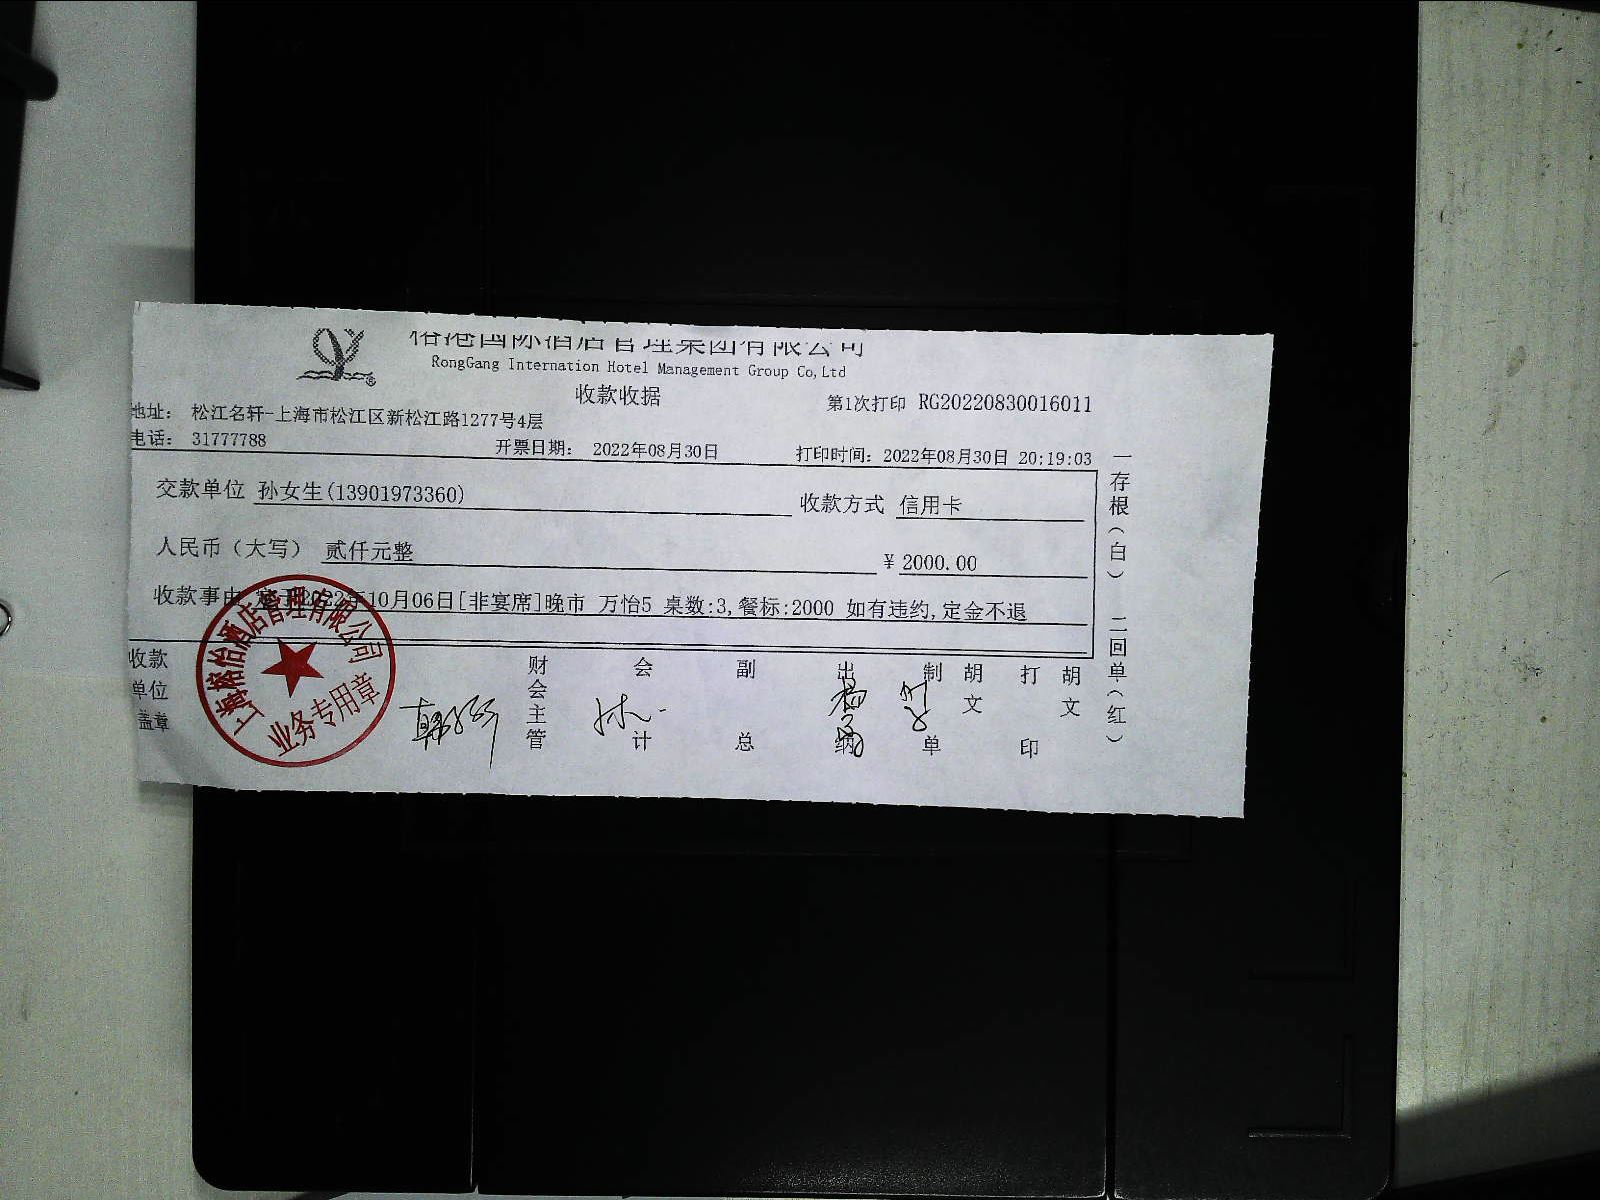 榕港国际酒店管理集团有限公司
RongGang Internation Hotel Management Group Co,Ltd
收款收据
第1次打印 RG20220830016011
地址： 松江名轩-上海市松江区新松江路1277号4层
电话： 31777788
开票日期： 2022年08月30日
打印时间：2022年08月30日 20:19:03
交款单位 孙女生(13901973360)
收款方式 信用卡
人民币（大写） 贰仟元整
¥ 2000.00
收款事由 2022年10月06日[非宴席]晚市 万怡5 桌数:3,餐标:2000 如有违约,定金不退
收款单位盖章
财会主管
会计
副总
出纳
制单 胡文
打印 胡文
一存根（白） 二回单（红）
上海榕怡酒店管理有限公司
业务专用章